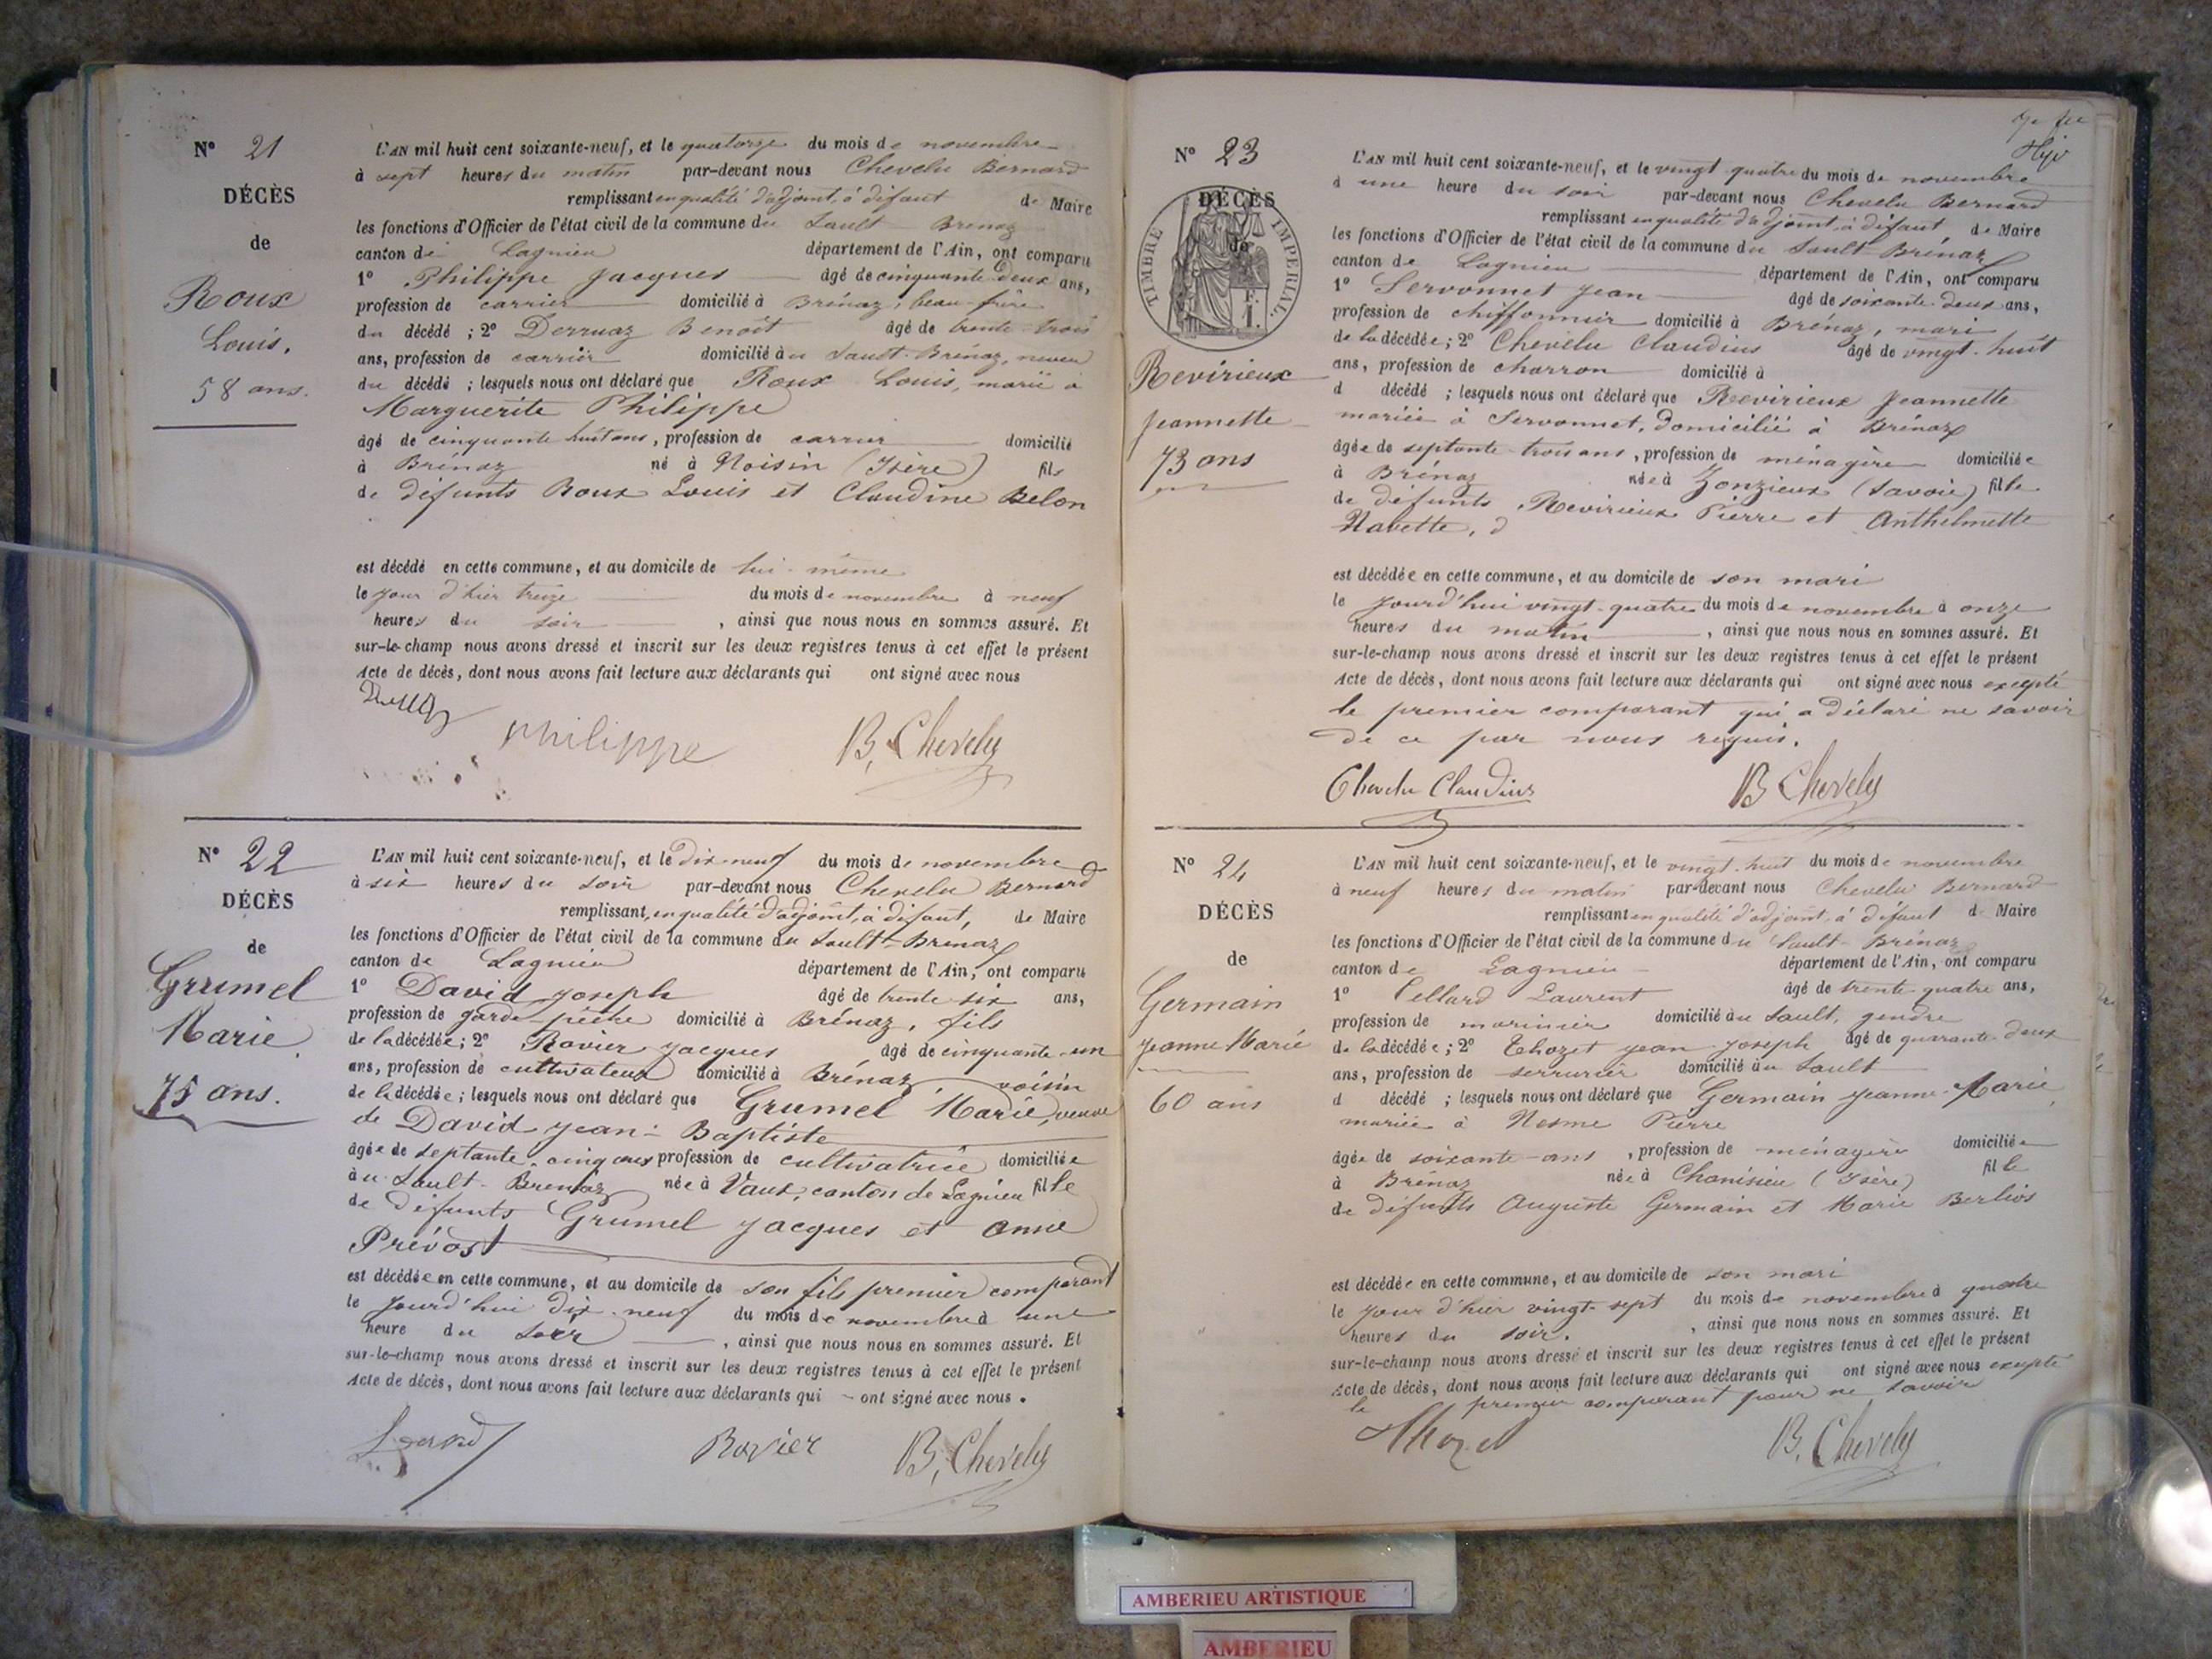 N° 21
DÉCÈS
de
Roux
Louis.
58 ans.
L'AN mil huit cent soixante-neuf, et le quatorze du mois de novembre
à sept heures du matin par-devant nous Chevelu Bernard
remplissant en qualité d'adjoint, à défaut de Maire
les fonctions d'Officier de l'état civil de la commune du Sault Brenaz
canton de Lagnieu département de l'Ain, ont comparu
1° Philippe Jacques âgé de cinquante deux ans,
profession de carrier domicilié à Brénaz, beau-frère
du décédé ; 2° Derruaz Benoît âgé de trente-trois
ans, profession de carrier domicilié au Sault-Brénaz, neveu
du décédé ; lesquels nous ont déclaré que Roux Louis, marié à
Marguerite Philippe
âgé de cinquante huit ans, profession de carrier domicilié
à Brénaz né à Noisin (Isère) fils
de défunts Roux Louis et Claudine Belon
est décédé en cette commune, et au domicile de lui-même
le jour d'hier treize du mois de novembre à neuf
heures du soir, ainsi que nous nous en sommes assuré. Et
sur-le-champ nous avons dressé et inscrit sur les deux registres tenus à cet effet le présent
Acte de décès, dont nous avons fait lecture aux déclarants qui ont signé avec nous
philippe B. Chevelu
N° 22
DÉCÈS
de
Grumel
Marie.
75 ans.
L'AN mil huit cent soixante-neuf, et le Dix neuf du mois de novembre
à six heures du soir par-devant nous Chevelu Bernard
remplissant, en qualité d'adjoint, à défaut, de Maire
les fonctions d'Officier de l'état civil de la commune du Sault-Brenaz
canton de Lagnieu département de l'Ain, ont comparu
1° David Joseph âgé de trente-six ans,
profession de garde-pêche domicilié à Brénaz, fils
de la décédée ; 2° Ravier Jacques âgé de cinquante-un
ans, profession de cultivateur domicilié à Brénaz, voisin
de la décédée ; lesquels nous ont déclaré que Grumel Marie, veuve
de David Jean-Baptiste
âgée de septante-cinq ans profession de cultivatrice domiciliée
au Sault-Brenaz née à Vaux, canton de Lagnieu fille
de défunts Grumel Jacques et Anne
Prévost
est décédée en cette commune, et au domicile de son fils premier comparant
le jourd'hui dix-neuf du mois de novembre à une
heure du soir, ainsi que nous nous en sommes assuré. Et
sur-le-champ nous avons dressé et inscrit sur les deux registres tenus à cet effet le présent
Acte de décès, dont nous avons fait lecture aux déclarants qui ont signé avec nous.
Ravier B. Chevelu
N° 23
DÉCÈS
de
TIMBRE IMPERIAL.
Revirieux
Jeannette
73 ans
L'AN mil huit cent soixante-neuf, et le vingt-quatre du mois de novembre
à une heure du soir par-devant nous Chevelu Bernard
remplissant en qualité d'adjoint, à défaut de Maire
les fonctions d'Officier de l'état civil de la commune du Sault-Brénaz
canton de Lagnieu département de l'Ain, ont comparu
1° Servonnet Jean âgé de soixante-deux ans,
profession de chiffonnier domicilié à Brénaz, mari
de la décédée ; 2° Chevelu Claudius âgé de vingt-huit
ans, profession de charron domicilié à
d décédé ; lesquels nous ont déclaré que Revirieux Jeannette
mariée à Servonnet, domiciliée à Brénaz
âgée de septante-trois ans, profession de ménagère domiciliée
à Brénaz née à Zonzieux (Savoie) fille
de défunts Revirieux Pierre et Anthelmette
Navette,
est décédée en cette commune, et au domicile de son mari
le jourd'hui vingt-quatre du mois de novembre à onze
heures du matin, ainsi que nous nous en sommes assuré. Et
sur-le-champ nous avons dressé et inscrit sur les deux registres tenus à cet effet le présent
Acte de décès, dont nous avons fait lecture aux déclarants qui ont signé avec nous excepté
le premier comparant qui a déclaré ne savoir
de ce par nous requis.
Chevelu Claudius B Chevelu
N° 24
DÉCÈS
de
Germain
Jeanne Marie
60 ans
L'AN mil huit cent soixante-neuf, et le vingt-huit du mois de novembre
à neuf heures du matin par-devant nous Chevelu Bernard
remplissant en qualité d'adjoint, à défaut de Maire
les fonctions d'Officier de l'état civil de la commune du Sault-Brénaz
canton de Lagnieu département de l'Ain, ont comparu
1° Vellard Laurent âgé de trente-quatre ans,
profession de marinier domicilié au Sault, gendre
de la décédée ; 2° Thozet Jean-Joseph âgé de quarante-deux
ans, profession de serrurier domicilié au Sault
d décédé ; lesquels nous ont déclaré que Germain Jeanne-Marie,
mariée à Nesme Pierre
âgée de soixante-ans, profession de ménagère domiciliée
à Brénaz née à Chanisieu (Isère) fille
de défunts Auguste Germain et Marie Berlios
est décédée en cette commune, et au domicile de son mari
le jour d'hier vingt-sept du mois de novembre à quatre
heures du soir., ainsi que nous nous en sommes assuré. Et
sur-le-champ nous avons dressé et inscrit sur les deux registres tenus à cet effet le présent
Acte de décès, dont nous avons fait lecture aux déclarants qui ont signé avec nous excepté
le premier comparant pour ne savoir
Thozet B. Chevelu
AMBERIEU ARTISTIQUE
AMBERIEU